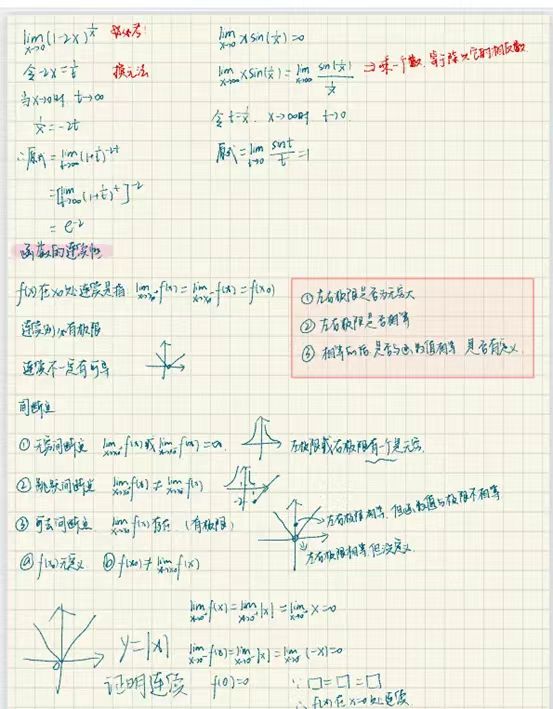 lim x→0 (1-2x)^(1/x) 必考!
令-2x=1/t 换元法
当x→0时, t→∞
1/x=-2t
∴原式=lim t→∞ (1+1/t)^(-2t)
=[lim t→∞ (1+1/t)^t]^(-2)
=e^(-2)
lim x→0 x sin(1/x)=0
lim x→∞ x sin(1/x)=lim x→∞ sin(1/x)/(1/x) ⇒乘一个数,等于除以它的相反数
令t=1/x, x→∞时 t→0.
原式=lim t→0 sint/t=1
函数的连续性
f(x)在x0处连续是指 lim x→x0⁻ f(x)=lim x→x0⁺ f(x)=f(x0)
连续必有极限
连续不一定有可导
① 左右极限是否为无穷大
② 左右极限是否相等
③ 相等的话 是否与函数值相等 是否有定义
间断点
① 无穷间断点 lim f(x)或lim f(x)=∞. 左极限或右极限有一个是无穷.
② 跳跃间断点 lim f(x)≠lim f(x)
③ 可去间断点 lim x→x0 f(x)存在 (有极限)
左右极限相等, 但函数值与极限不相等
左右极限相等, 但没定义.
ⓐ f(x0)无定义 ⓑ f(x0)≠lim x→x0 f(x)
y=|x|
证明连续
lim x→0⁺ f(x)=lim x→0⁺ |x|=lim x→0⁺ x=0
lim x→0⁻ f(x)=lim x→0⁻ |x|=lim x→0⁻ (-x)=0
f(0)=0 ∵ □=□=□
∴ f(x)在x=0处连续